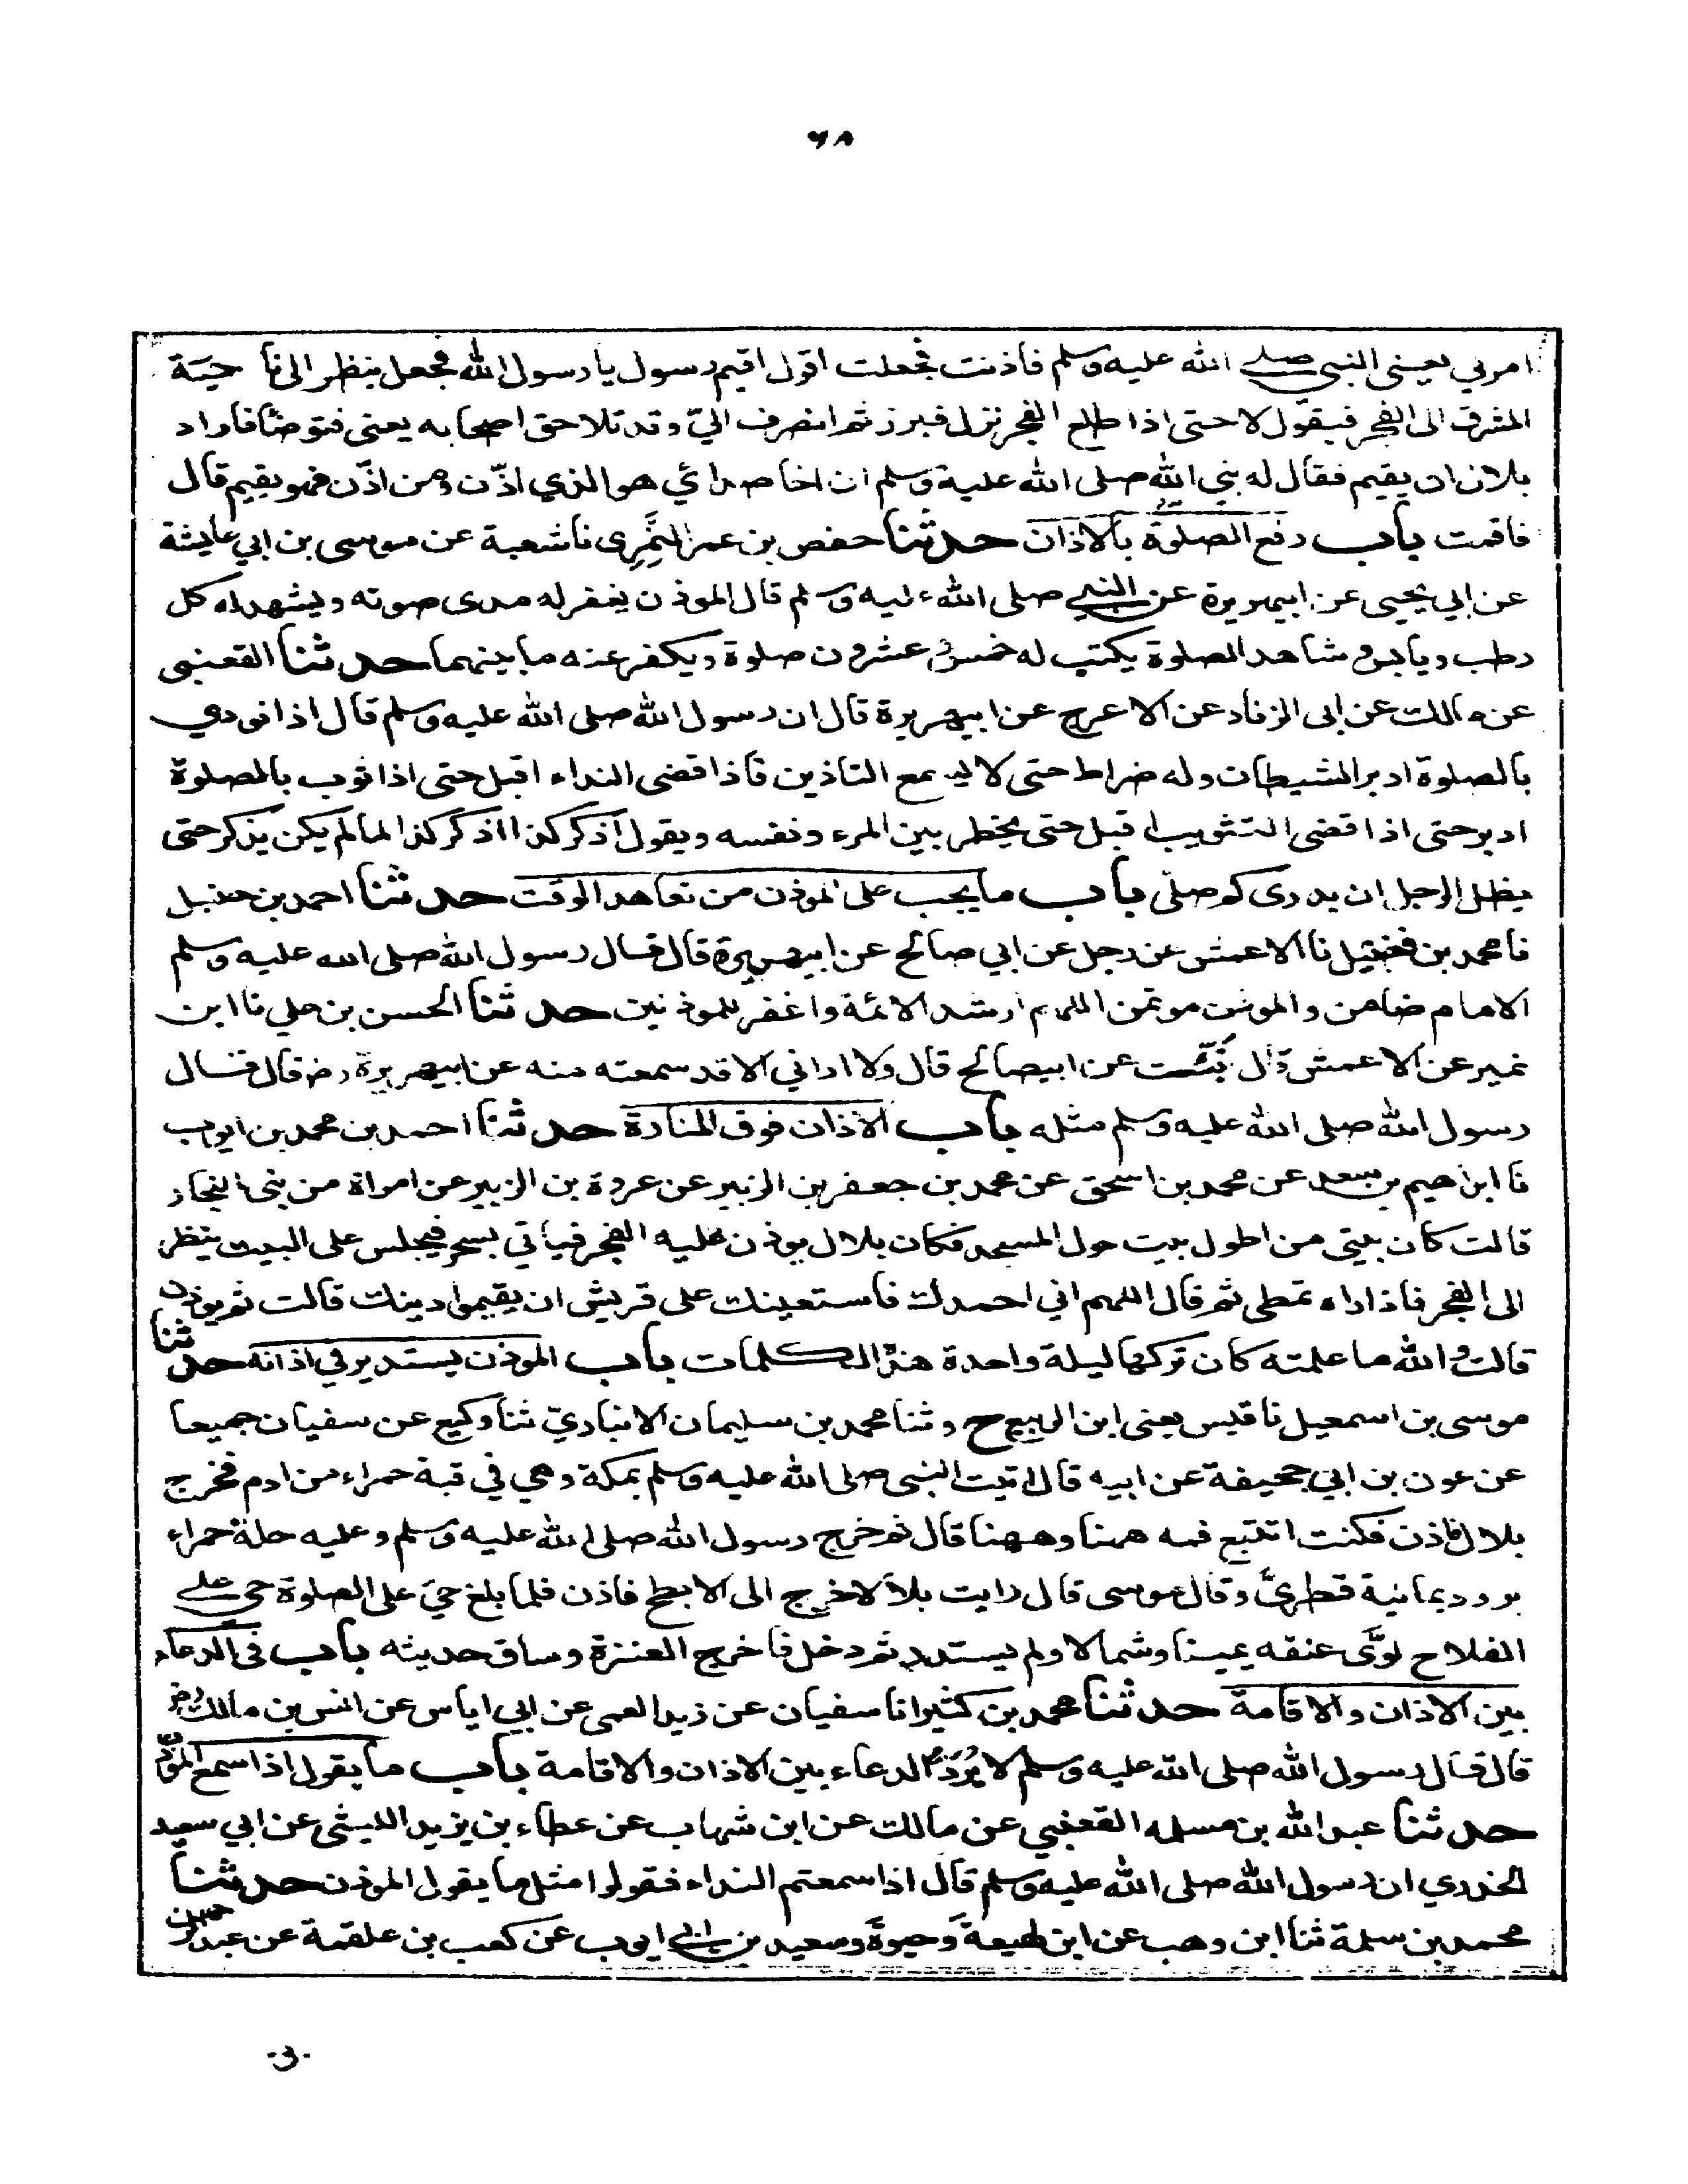 ٦٨
امرني يعنى النبى صلى الله عليه وسلم فاذنت فجعلت اقول اقيم رسول يا رسول الله فجعل ينظر الى نا حية
المشرق الى الفجر فيقول لا حتى اذا طلع الفجر نزل فبرز ثم انصرف اليّ وقد تلاحق اصحابه يعنى فتوضّأ فاراد
بلال ان يقيم فقال له نبي الله صلى الله عليه وسلم ان اخا صدائي هو الذي اذّن ومن اذّن فهو يقيم قال
فاقمت باب رفع الصلوة بالاذان حدثنا حفص بن عمر النَّمَرِى نا شعبة عن موسى بن ابي عايشة
عن ابي يحيى عن ابيهريرة عن النبي صلى الله عليه وسلم قال الموذن يغفر له مدى صوته ويشهد له كل
رطب ويابس و شاهد الصلوة يكتب له خمس و عشرون صلوة ويكفر عنه ما بينهما حدثنا القعنبى
عن مالك عن ابى الزناد عن الاعرج عن ابيهريرة قال ان رسول الله صلى الله عليه وسلم قال اذا نودي
بالصلوة ادبر الشيطان وله ضراط حتى لا يسمع التاذين فاذا قضى النداء اقبل حتى اذا ثوب بالصلوة
ادبر حتى اذا قضى التثويب اقبل حتى يخطر بين المرء ونفسه ويقول اذكر كذا اذكر كذا لما لم يكن يذكر حتى
يظل الرجل ان يدرى كم صلّى باب ما يجب على الموذن من تعاهد الوقت حدثنا احمد بن حنبل
نا محمد بن فضيل نا الاعمش عن رجل عن ابي صالح عن ابيهريرة قال قال رسول الله صلى الله عليه وسلم
الامام ضامن والموذن موتمن اللهم ارشد الائمة واغفر للموذنين حدثنا الحسن بن علي نا ابن
نمير عن الاعمش قال نُبّئت عن ابيصالح قال ولا اراني الا قد سمعته منه عن ابيهريرة رض قال قال
رسول الله صلى الله عليه وسلم مثله باب الاذان فوق المنارة حدثنا احمد بن محمد بن ايوب
نا ابراهيم بن سعد عن محمد بن اسحق عن محمد بن جعفر بن الزبير عن عروة بن الزبير عن امراة من بنى النجار
قالت كان بيتى من اطول بيت حول المسجد فكان بلال يوذن عليه الفجر فياتي بسحر فيجلس على البيت ينظر
الى الفجر فاذا راه تمطى ثم قال اللهم اني احمدك فاستعينك على قريش ان يقيموا دينك قالت ثم يوذن
قالت و الله ما علمته كان تركها ليلة واحدة هذه الكلمات باب الموذن يستدير في اذانه حدثنا
موسى بن اسمعيل نا قيس يعنى ابن الربيع ح وثنا محمد بن سليمان الانباريّ ثنا وكيع عن سفيان جميعا
عن عون بن ابي جحيفة عن ابيه قال اتيت النبى صلى الله عليه وسلم بمكة وهي في قبة حمراء من ادم فخرج
بلال فاذن فكنت اتتبع فمه ههنا وههنا قال ثم خرج رسول الله صلى الله عليه وسلم وعليه حلة حمراء
برود يمانية قطريٌّ وقال موسى قال رايت بلالا خرج الى الابطح فاذن فلما بلغ حيّ على الصلوة حي على
الفلاح لوَّى عنقه يمينا وشمالا ولم يستدر ثم دخل فاخرج العنزة وساق حديثه باب فى الدعاء
بين الاذان والاقامة حدثنا محمد بن كثير انا سفيان عن زيد العمى عن ابي اياس عن انس بن مالك رض
قال قال رسول الله صلى الله عليه وسلم لا يُرَدُّ الدعاء بين الاذان والاقامة باب ما يقول اذا سمع المؤذّن
حدثنا عبد الله بن مسلمه القعنبي عن مالك عن ابن شهاب عن عطاء بن يزيد الليثى عن ابي سعيد
الخدري ان رسول الله صلى الله عليه وسلم قال اذا سمعتم النداء فقولوا مثل ما يقول الموذن حدثنا
محمد بن سلمة ثنا ابن وهب عن ابن لهيعة وحيوة وسعيد بن ابي ايوب عن كعب بن علقمة عن عبد الرحمن